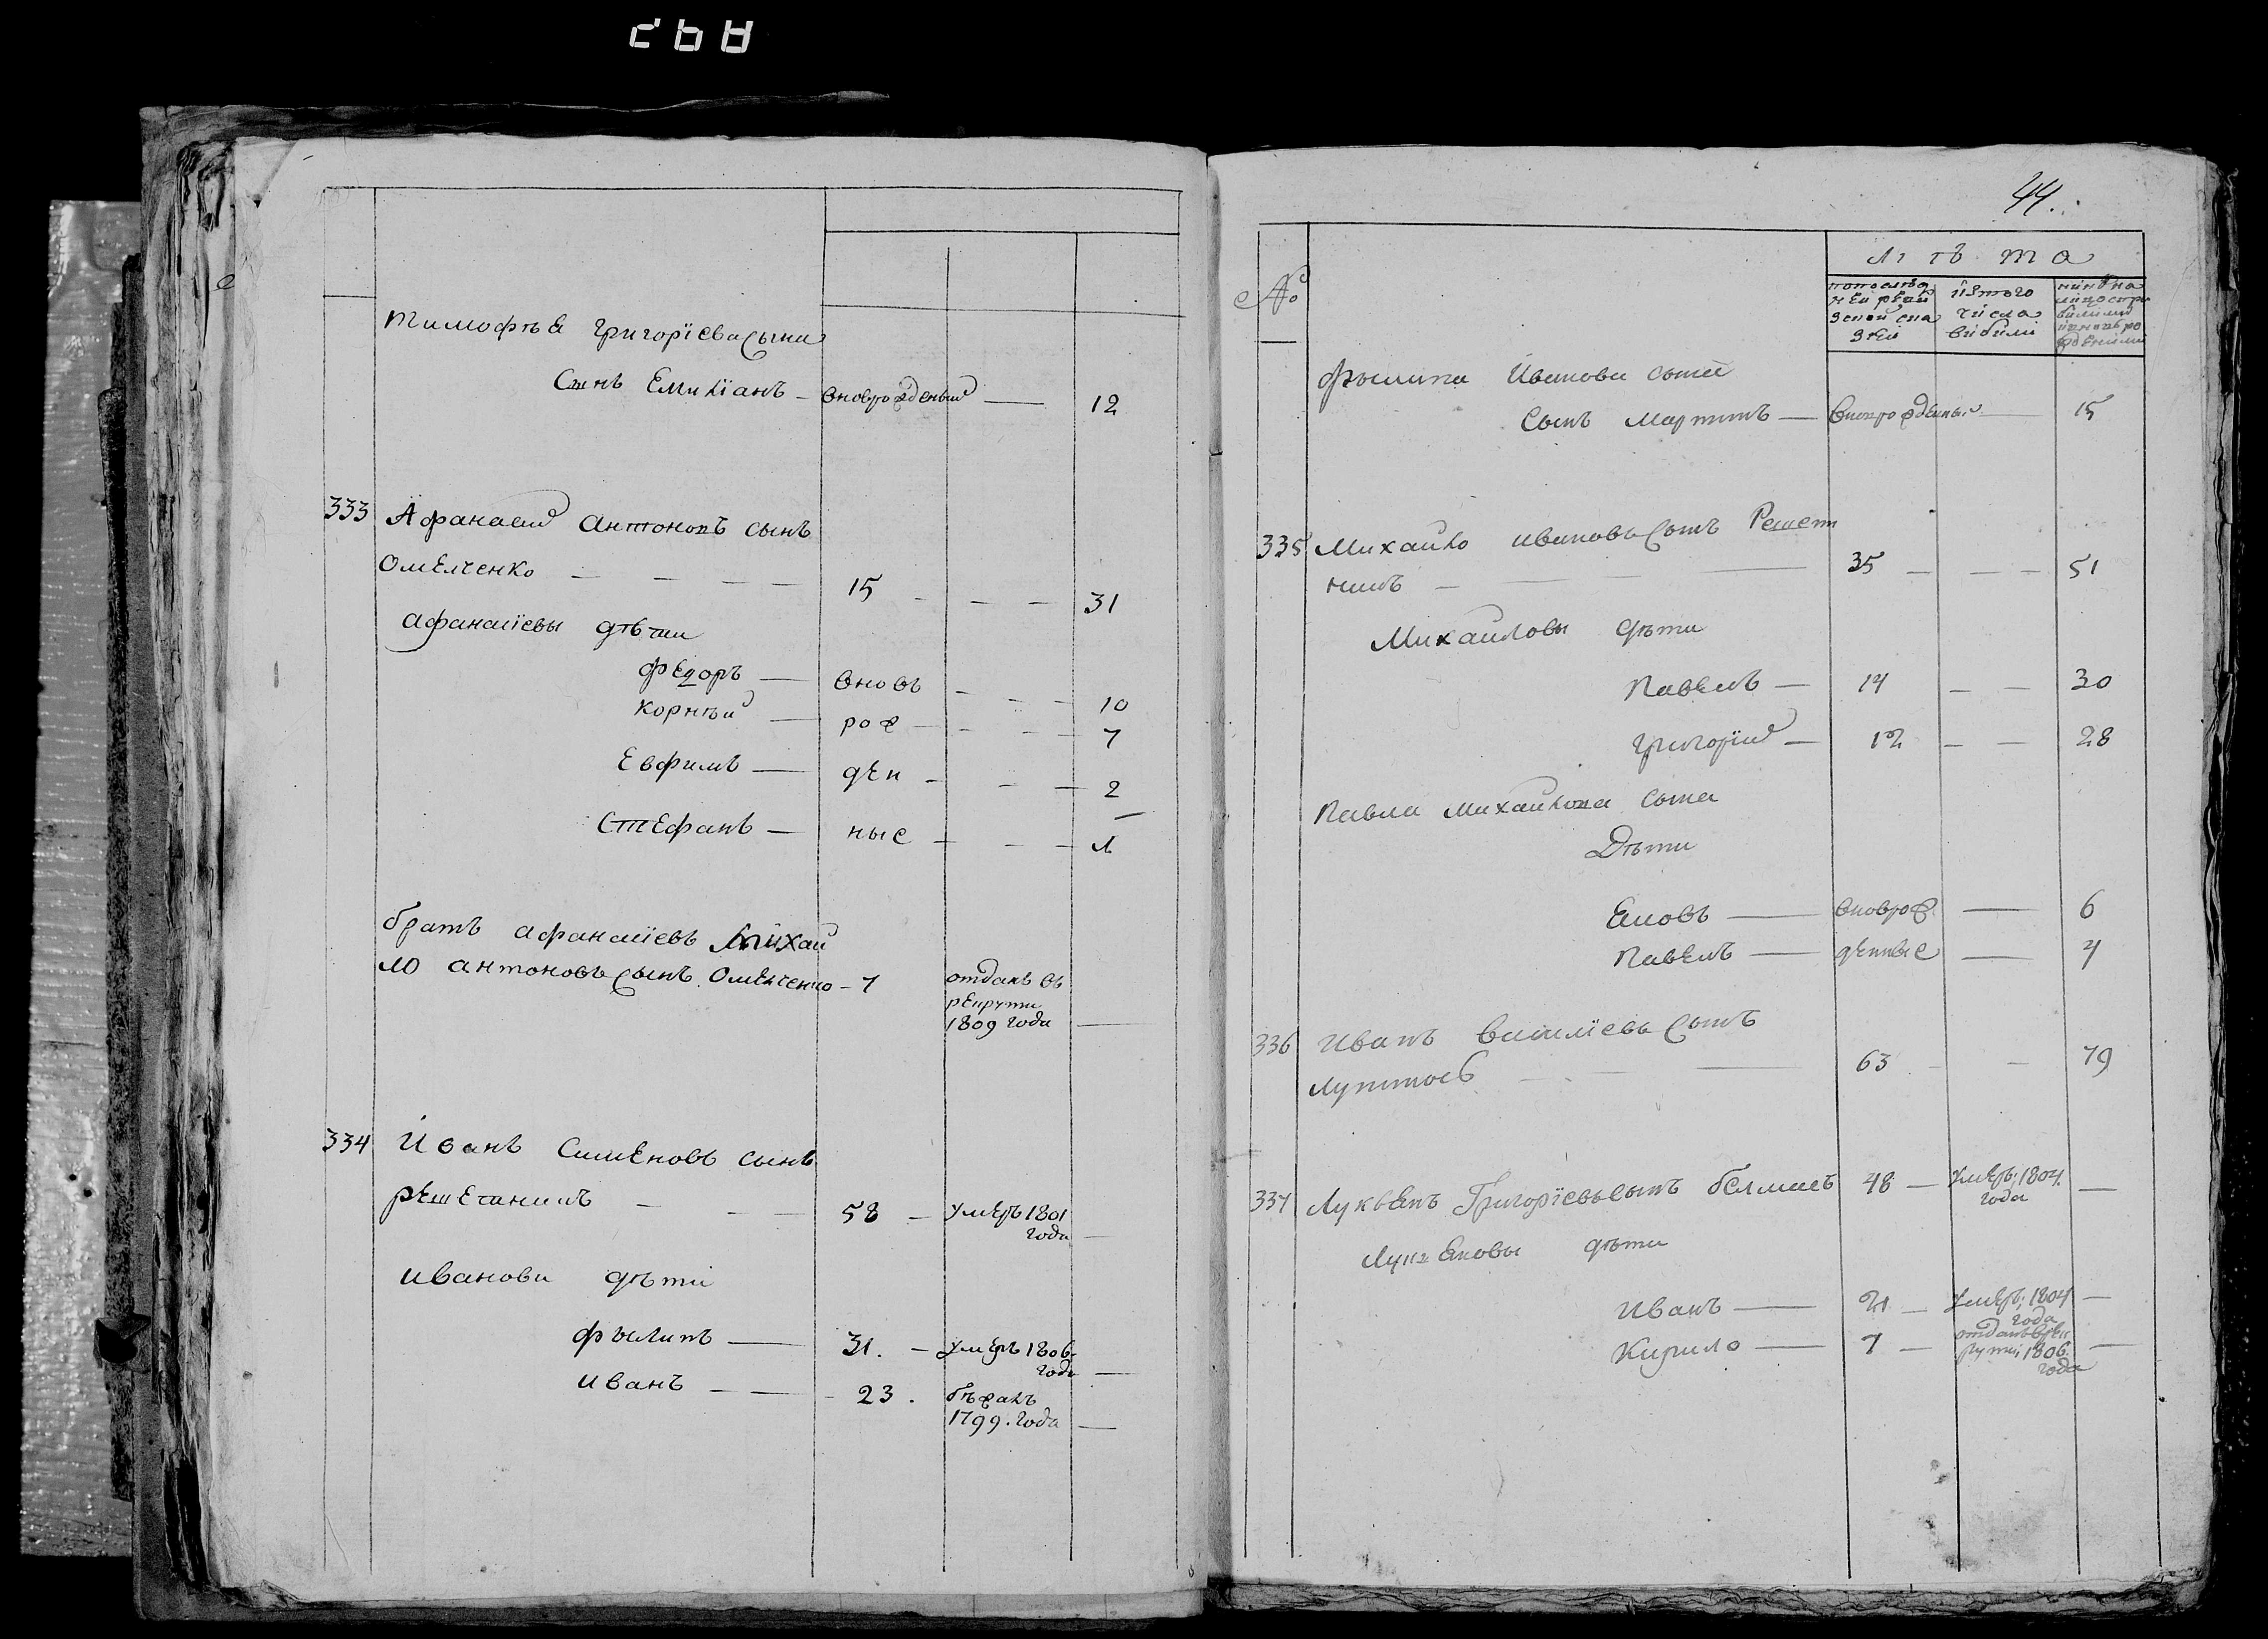 Тимофѣя Григорїева сына
Сынъ Емилїанъ — вноврожденый — 12
333 Афанасий Антоновъ сынъ
Омелченко — 15 — 31
Афанасїевы дѣти
Федоръ — вновь — 10
Корнѣй — рож — 7
Евфимъ — ден — 2
Стефанъ — ные —
братъ Афанасїевъ Михай
ло Антоновъ сынъ Омелченко — 7 отданъ въ
рекруты
1809 года —
334 Иванъ Сименовъ сынъ
Решетнинъ — 58 — умеръ 1801
года —
Иванови дѣти
Филипъ — 31. — умеръ 1806.
года —
Иванъ — 23. бѣжалъ
1799. года —
44.
лѣта
№
по последней ревизской сказки
изъ того числа выбыли
Филипа Иванова сына
Сынъ Мартинъ — вноврожденый — 15
335 Михайло Ивановъ сынъ Решетнинъ — 35 — 51
Михайловы дѣти
Павелъ — 14 — 30
Григорїй — 12 — 28
Павла Михайлова сына
Дѣти
Яковъ — вноврож — 6
Павелъ — денные — 4
336 Иванъ Василїевъ сынъ
— 63 — 79
337 Лукьянъ Григорїевъ сынъ — 48 — умеръ 1804.
года —
Лукьяновы дѣти
Иванъ — 21 — умеръ 1804
года —
Кирило — 7 — отданъ в рек
руты 1806.
года —